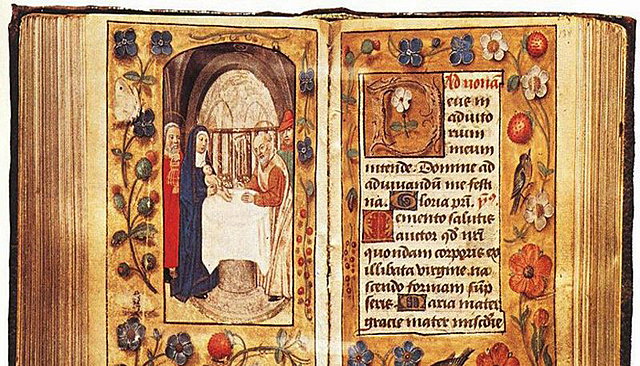 Ad nona
Deus in
adiuto
rium
meum
intende. Domine ad
adiuuandū me festi
na. Gloria pr̄i. 
Memento salutis
auctor qd̄ nr̄i
quondam corporis ex
illibata virgine na
scendo formam sūp
seris. Maria mater
gracie mater mis̄cdie